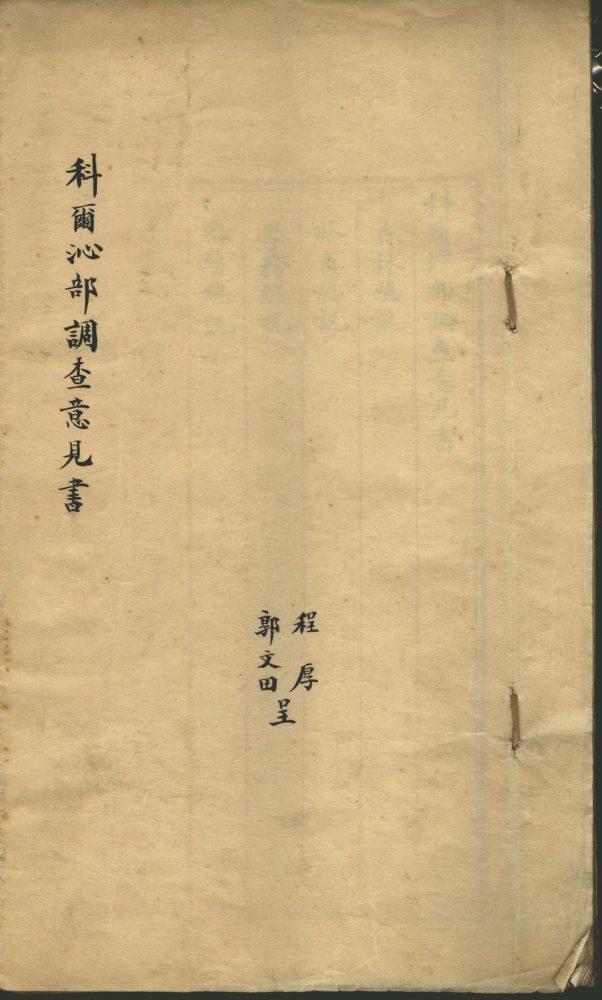 科爾沁部調查意見書
程厚
郭文田
呈